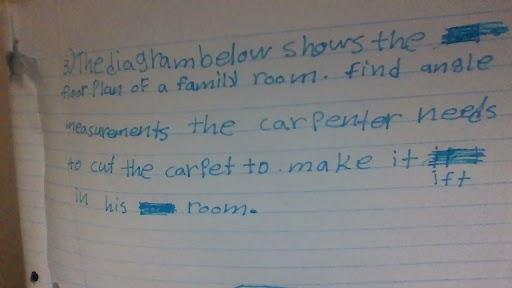 3) The diagram below shows the
floor Plan of a family room. find angle
measurements the carpenter needs
to cut the carpet to. make it
ift
in his room.